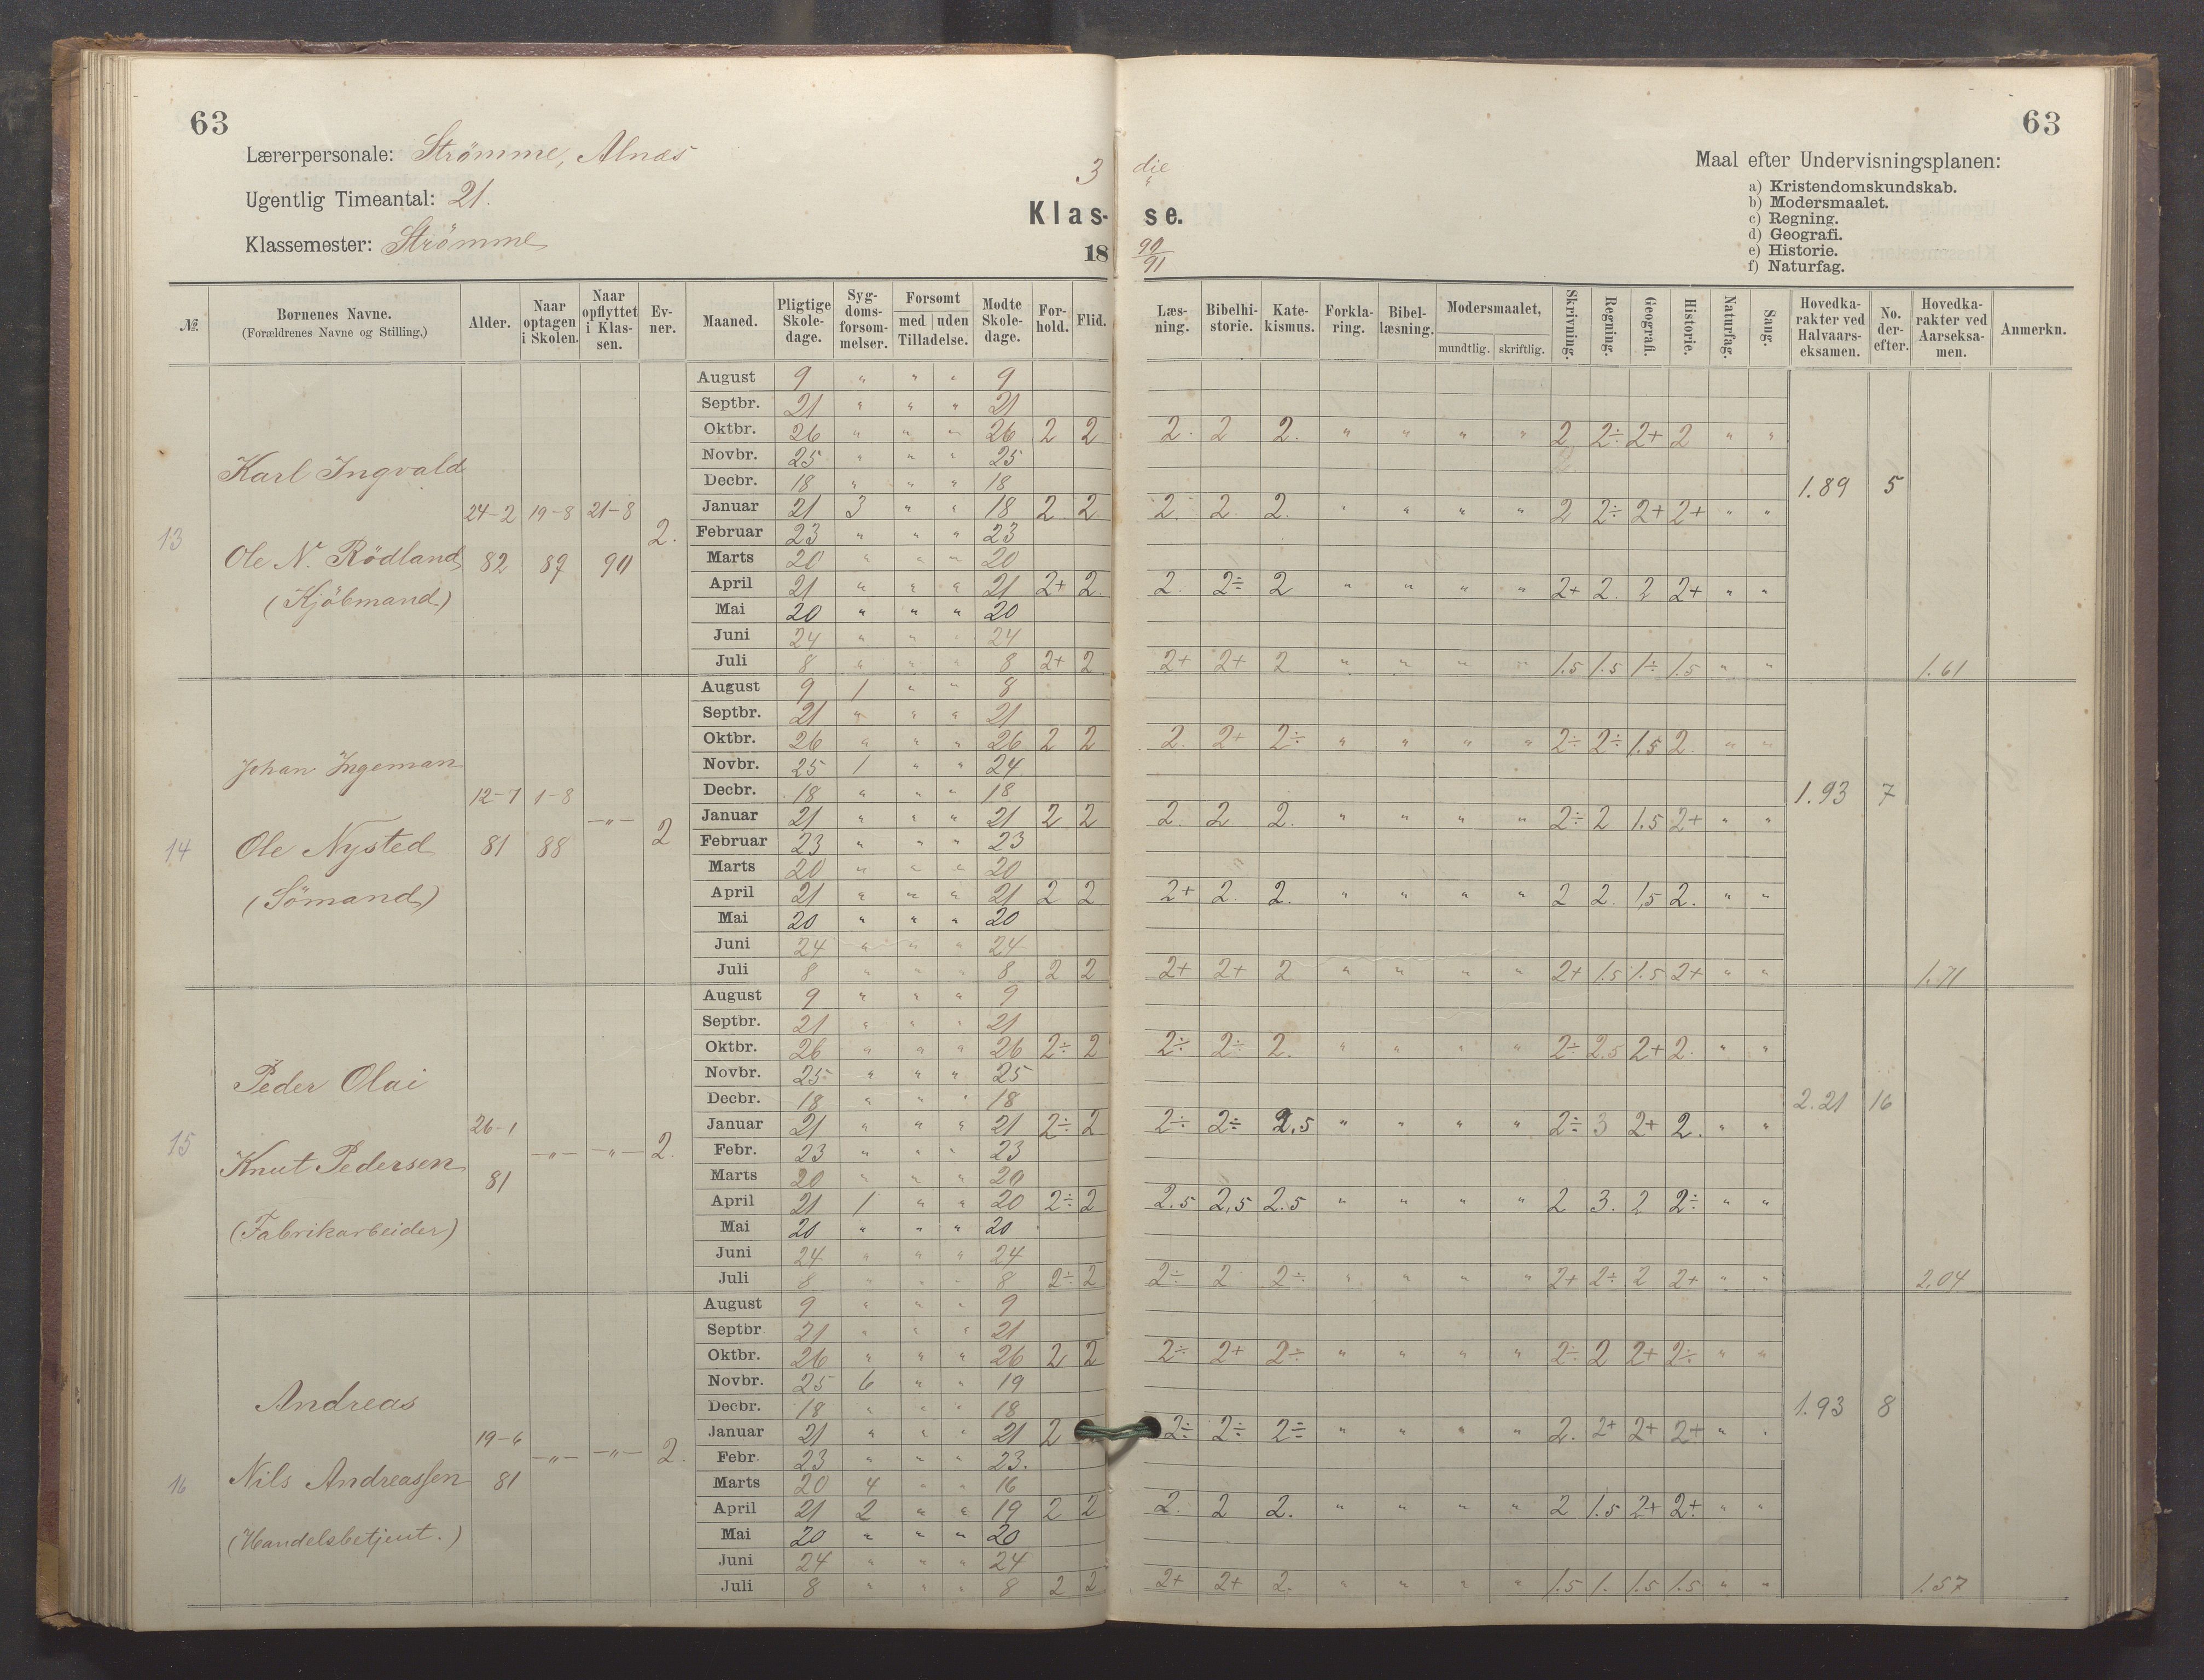 63
63
Lærerpersonale: Strömme, Alnæs
Ugentlig Timeantal: 21.
Klassemester: Strömme
3 die
Klas- se.
18 90/91
Maal efter Undervisningsplanen:
a) Kristendomskundskab.
b) Modersmaalet.
c) Regning.
d) Geografi.
e) Historie.
f) Naturfag.
№ Bornenes Navne. (Forældrenes Navne og Stilling.) Alder. Naar optagen i Skolen. Naar opflyttet i Klassen. Evner. Maaned. Pligtige Skoledage. Sygdomsforsommelser. Forsomt med | uden Tilladelse. Modte Skoledage. Forhold. Flid. Læsning. Bibelhistorie. Katekismus. Forklaring. Bibellæsning. Modersmaalet, mundtlig. skriftlig. Skrivning. Regning. Geografi. Historie. Naturfag. Sang. Hovedkarakter ved Halvaarseksamen. No. derefter. Hovedkarakter ved Aarseksamen. Anmerkn.
13 Karl Ingvald
Ole N. Rödland
(Kjöbmand)
24-2 82 19-8 89 21-8 90 2.
August 9 " " " 9
Septbr. 21 " " " 21
Oktbr. 26 " " " 26 2 2 2. 2 2. " " " " 2 2÷ 2+ 2 " "
Novbr. 25 " " " 25
Decbr. 18 " " " 18 1.89 5
Januar 21 3 " " 18 2 2 2. 2 2. " " " " 2 2÷ 2+ 2+ " "
Februar 23 " " " 23
Marts 20 " " " 20
April 21 " " " 21 2+ 2. 2. 2÷ 2 " " " " 2+ 2. 2 2+ " "
Mai 20 " " " 20
Juni 24 " " " 24
Juli 8 " " " 8 2+ 2 2+ 2+ 2 " " " " 1.5 1.5 1÷ 1.5 " " 1.61
14 Johan Ingeman
Ole Nysted
(Sömand)
12-7 81 1-8 88 -"- 2
August 9 1 " " 8
Septbr. 21 " " " 21
Oktbr. 26 " " " 26 2 2 2. 2+ 2÷ " " " " 2÷ 2÷ 1.5 2. " "
Novbr. 25 1 " " 24
Decbr. 18 " " " 18 1.93 7
Januar 21 " " " 21 2 2 2. 2 2. " " " " 2÷ 2 1.5 2+ " "
Februar 23 " " " 23
Marts 20 " " " 20
April 21 " " " 21 2 2 2+ 2. 2. " " " " 2 2. 1,5 2. " "
Mai 20 " " " 20
Juni 24 " " " 24
Juli 8 " " " 8 2 2 2+ 2+ 2 " " " " 2+ 1.5 1.5 2+ " " 1.71
15 Peder Olai
Knut Pedersen
(Fabrikarbeider)
26-1 81 -"- -"- 2.
August 9 " " " 9
Septbr. 21 " " " 21
Oktbr. 26 " " " 26 2÷ 2 2÷ 2÷ 2. " " " " 2÷ 2.5 2+ 2. " "
Novbr. 25 " " " 25
Decbr. 18 " " " 18 2.21 16
Januar 21 " " " 21 2÷ 2 2÷ 2÷ 2.5 " " " " 2÷ 3 2+ 2. " "
Febr. 23 " " " 23
Marts 20 " " " 20
April 21 1 " " 20 2÷ 2 2.5 2,5 2.5 " " " " 2 3. 2 2÷ " "
Mai 20 " " " 20
Juni 24 " " " 24
Juli 8 " " " 8 2÷ 2 2÷ 2 2÷ " " " " 2+ 2÷ 2 2+ " " 2,04
16 Andreas
Nils Andreassen
(Handelsbetjent.)
19-6 81 -"- -"- 2.
August 9 " " " 9
Septbr 21 " " " 21
Oktbr. 26 " " " 26 2 2 2÷ 2+ 2÷ " " " " 2÷ 2 2+ 2÷ " "
Novbr. 25 6 " " 19
Decbr. 18 " " " 18 1.93 8
Januar 21 " " " 21 2 2÷ 2÷ 2÷ " " " " 2. 2+ 2+ 2+ " "
Febr. 23 " " " 23.
Marts 20 4 " " 16
April 21 2 " " 19 2 2 2. 2 2. " " " " 2 1.5 2+ 2+ " "
Mai 20 " " " 20
Juni 24 " " " 24
Juli 8 " " " 8 2 2 2+ 2+ 2. " " " " 1.5 1. 1.5 1.5 " " 1.57